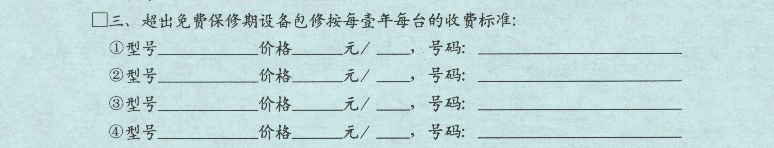 □三、超出免费保修期设备包修按每壹年每台的收费标准:
①型号__________价格_____元/ ___，号码: ____________________
②型号__________价格_____元/ ___，号码: ____________________
③型号__________价格_____元/ ___，号码: ____________________
④型号__________价格_____元/ ___，号码: ____________________